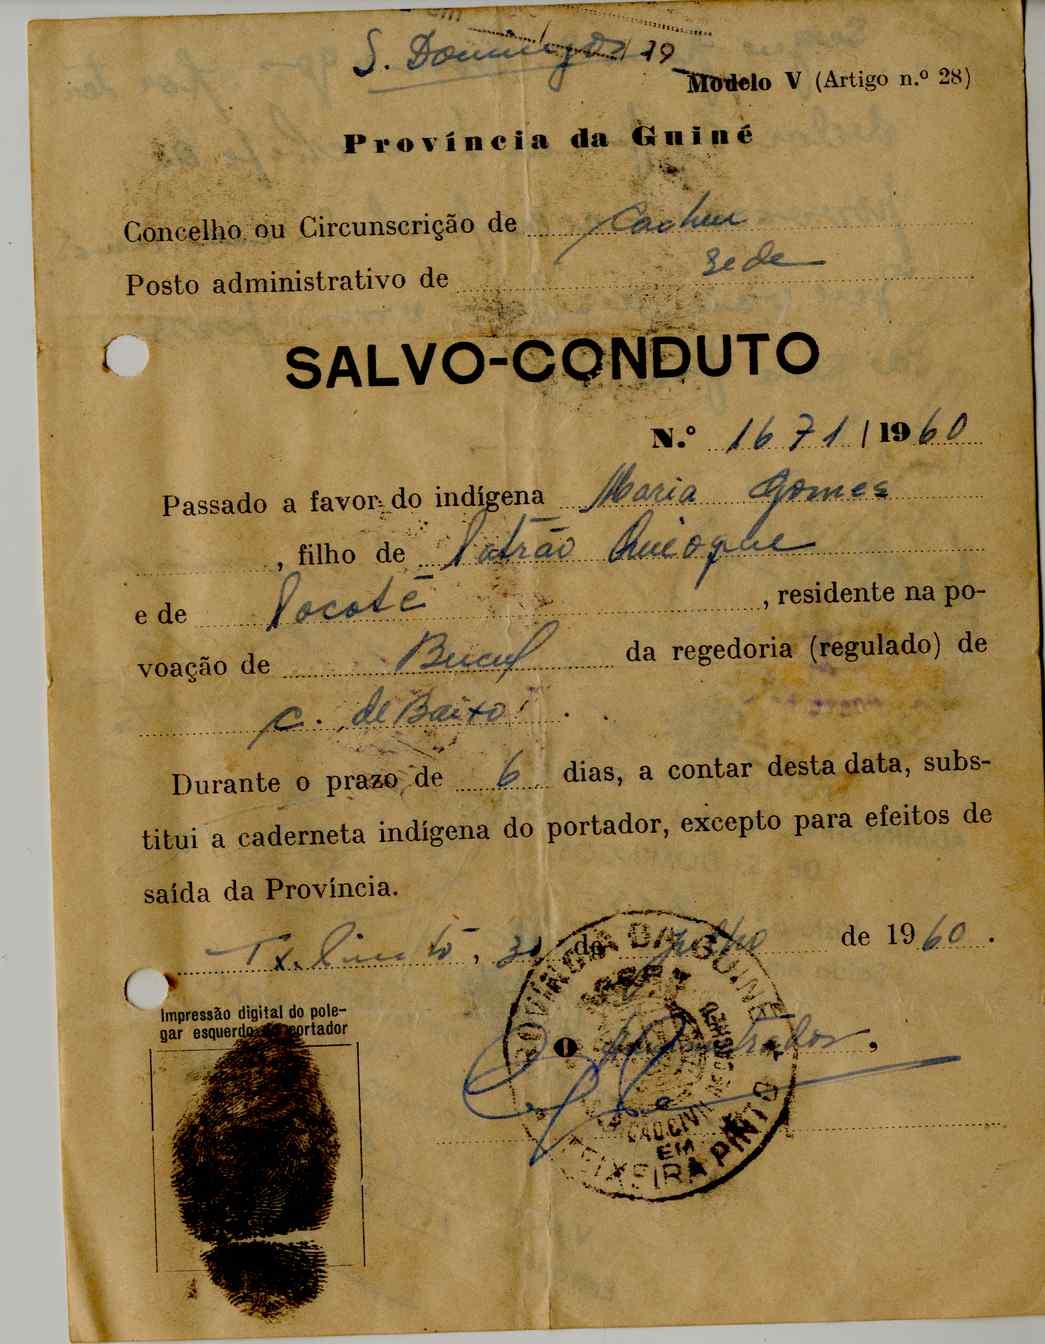 S. Domingos 19
Modelo V (Artigo n.º 28)
Província da Guiné
Concelho ou Circunscrição de Cacheu
Posto administrativo de Sede
SALVO-CONDUTO
N.º 1671/1960
Passado a favor do indígena Maria Gomes
, filho de
e de Pocoté, residente na po-
voação de da regedoria (regulado) de
C. de Baixo
Durante o prazo de 6 dias, a contar desta data, subs-
titui a caderneta indígena do portador, excepto para efeitos de
saída da Província.
Tx. Pinto, 30 de Julho de 1960.
O Administrador,
Impressão digital do pole-
gar esquerdo do portador
PROVÍNCIA DA GUINÉ
EM
TEIXEIRA PINTO